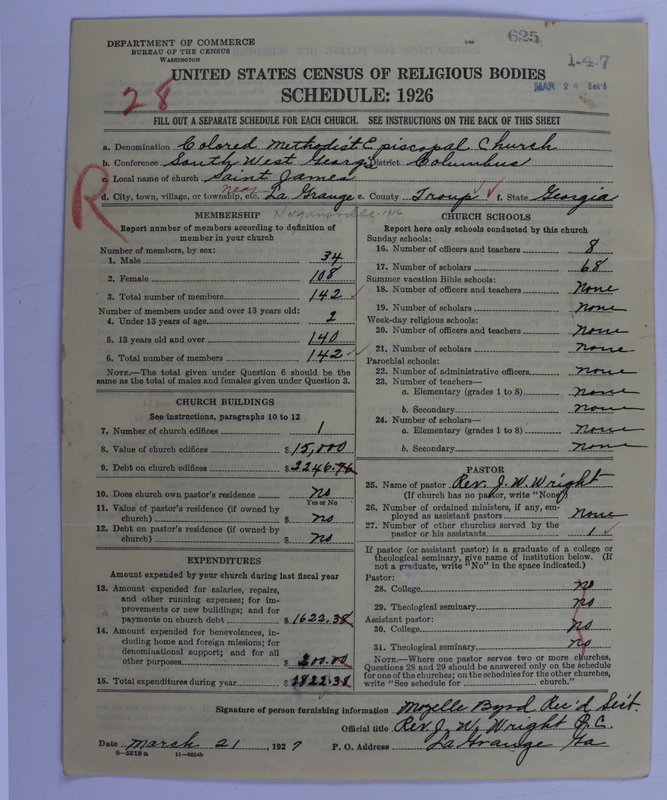 625
DEPARTMENT OF COMMERCE
BUREAU OF THE CENSUS
WASHINGTON
1-4-7
MAR 24
28
UNITED STATES CENSUS OF RELIGIOUS BODIES
SCHEDULE: 1926
FILL OUT A SEPARATE SCHEDULE FOR EACH CHURCH. SEE INSTRUCTIONS ON THE BACK OF THIS SHEET
R
a. Denomination Colored Methodist Episcopal Church
b. Conference South West Georgia District Columbus
c. Local name of church Saint James
d. City, town, village, or township, etc. near La Grange e. County Troup f. State Georgia
MEMBERSHIP
Report number of members according to definition of member in your church
Number of members, by sex:
1. Male 34
2. Female 108
3. Total number of members 142
Number of members under and over 13 years old:
4. Under 13 years of age 2
5. 13 years old and over 140
6. Total number of members 142
NOTE.—The total given under Question 6 should be the
same as the total of males and females given under Question 3.
CHURCH BUILDINGS
See instructions, paragraphs 10 to 12
7. Number of church edifices 1
8. Value of church edifices $15,000
9. Debt on church edifices $2246.76
10. Does church own pastor's residence no
Yes or No
11. Value of pastor's residence (if owned by
church) $ no
12. Debt on pastor's residence (if owned by
church) $ no
EXPENDITURES
Amount expended by your church during last fiscal year
13. Amount expended for salaries, repairs,
and other running expenses; for im-
provements or new buildings; and for
payments on church debt $1622.38
14. Amount expended for benevolences, in-
cluding home and foreign missions; for
denominational support; and for all
other purposes $200.00
15. Total expenditures during year $1822.38
CHURCH SCHOOLS
Report here only schools conducted by this church
Sunday schools:
16. Number of officers and teachers 8
17. Number of scholars 68
Summer vacation Bible schools:
18. Number of officers and teachers none
19. Number of scholars none
Week-day religious schools:
20. Number of officers and teachers none
21. Number of scholars none
Parochial schools:
22. Number of administrative officers none
23. Number of teachers—
a. Elementary (grades 1 to 8) none
b. Secondary none
24. Number of scholars—
a. Elementary (grades 1 to 8) none
b. Secondary none
PASTOR
25. Name of pastor Rev. J. W. Wright
(If church has no pastor, write "None")
26. Number of ordained ministers, if any, em-
ployed as assistant pastors none
27. Number of other churches served by the
pastor or his assistants 1
If pastor (or assistant pastor) is a graduate of a college or
theological seminary, give name of institution below. (If
not a graduate, write "No" in the space indicated.)
Pastor:
28. College no
29. Theological seminary no
Assistant pastor:
30. College no
31. Theological seminary no
NOTE.—Where one pastor serves two or more churches,
Questions 28 and 29 should be answered only on the schedule
for one of the churches; on the schedules for the other churches,
write "See schedule for church."
Signature of person furnishing information Mozelle Byrd Rec'd Sect.
Official title Rev. J. W. Wright P. C.
Date March 21, 1927 P. O. Address La Grange Ga
8-5518a 11-8654b